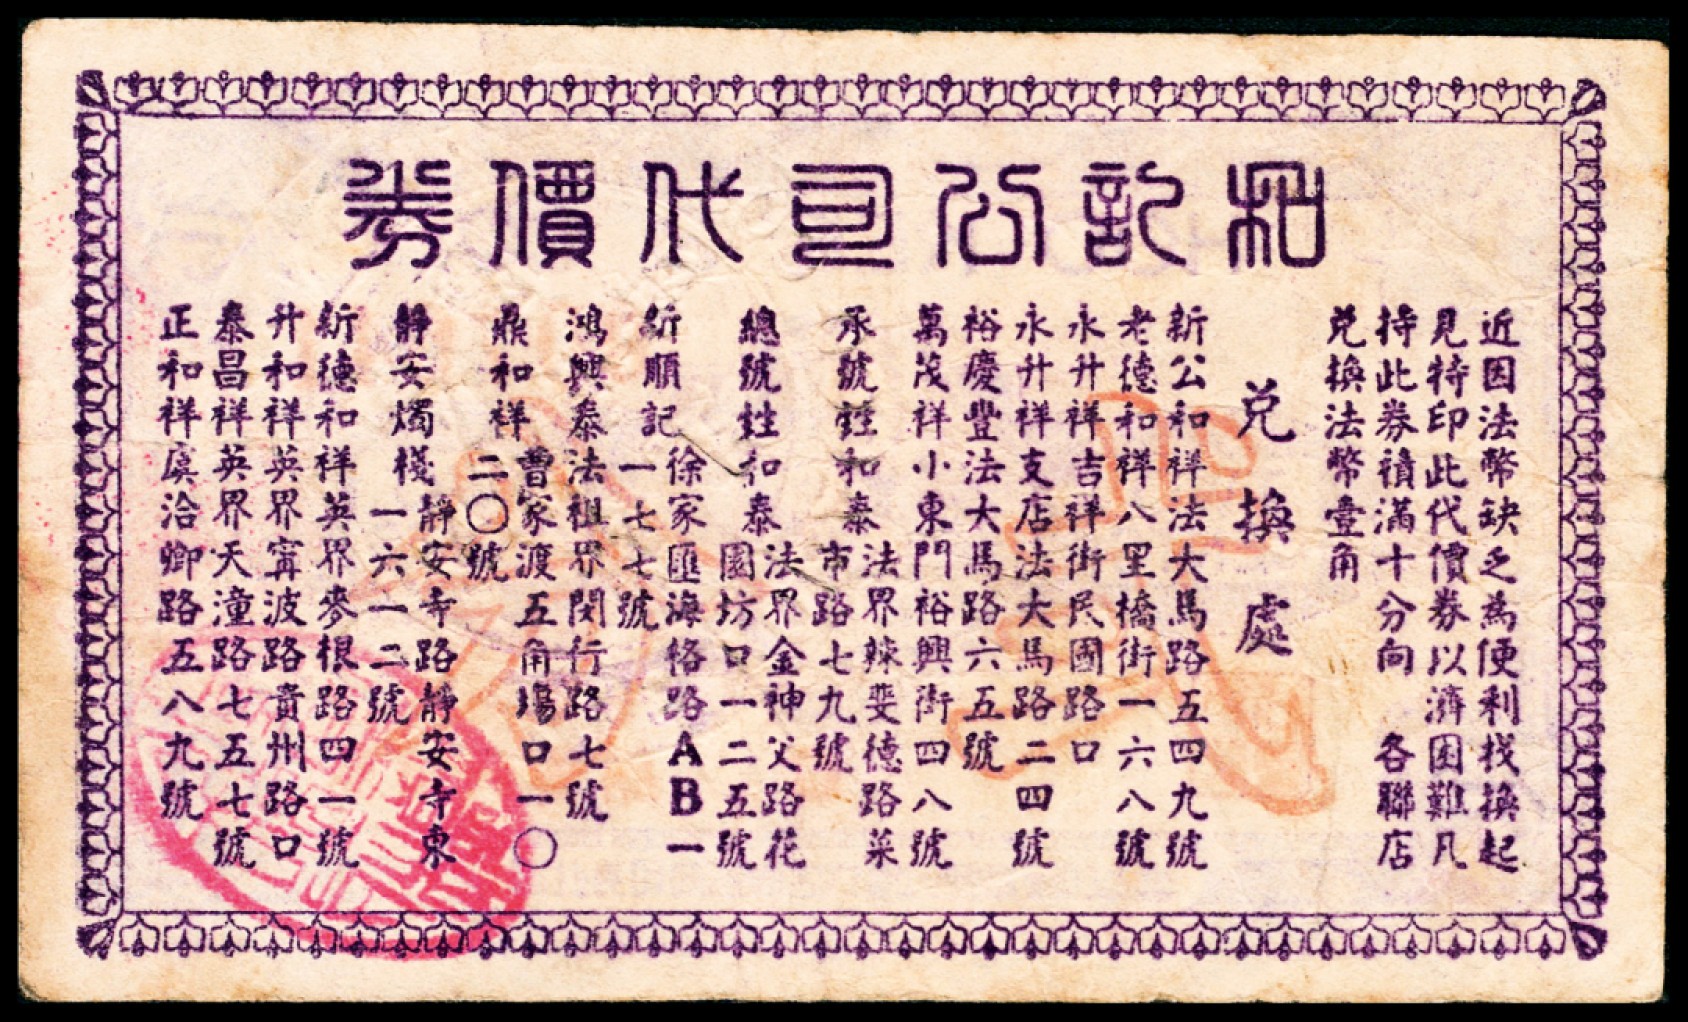 和記公司代價券
近因法幣缺乏為便利找換起
見特印此代價券以濟困難凡
持此券積滿十分向 各聯店
兌換法幣壹角
兌換處
新公和祥法大馬路五四九號
老德和祥八里橋街一六八號
永升祥吉祥街民國路口
永升祥支店法大馬路二四號
裕慶豐法大馬路六五號
萬茂祥小東門裕興街四八號
承號甡和泰 法界辣斐德路菜
市路七九號
總號甡和泰 法界金神父路花
園坊口一二五號
新順記 徐家匯海格路AB一
一七七號
鴻興泰法租界閔行路七號
鼎和祥 曹家渡五角場口一〇
二〇號
靜安燭棧 靜安寺路靜安寺東
一六一二號
新德和祥英界麥根路四一號
升和祥英界甯波路貴州路口
泰昌祥英界天潼路七五七號
正和祥虞洽卿路五八九號